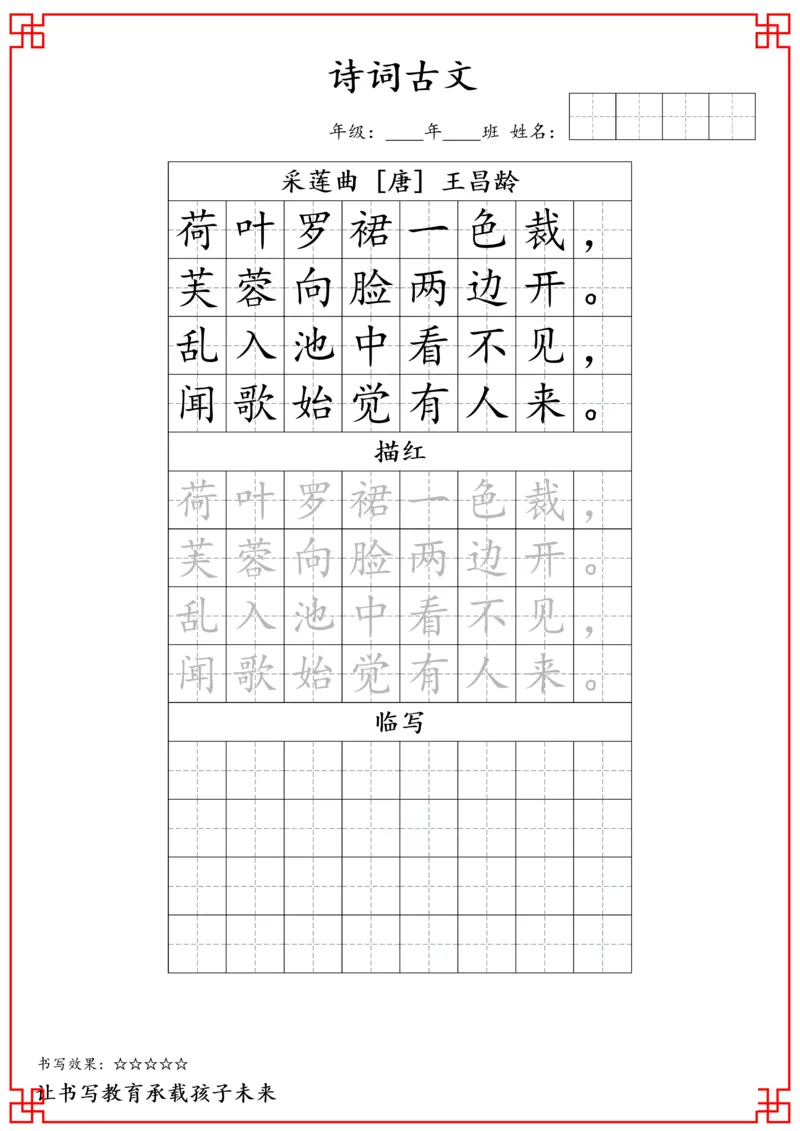 诗词古文
年级：____年____班 姓名：
采莲曲 [唐] 王昌龄
荷叶罗裙一色裁，
芙蓉向脸两边开。
乱入池中看不见，
闻歌始觉有人来。
描红
荷叶罗裙一色裁，
芙蓉向脸两边开。
乱入池中看不见，
闻歌始觉有人来。
临写
书写效果：☆☆☆☆☆
让书写教育承载孩子未来